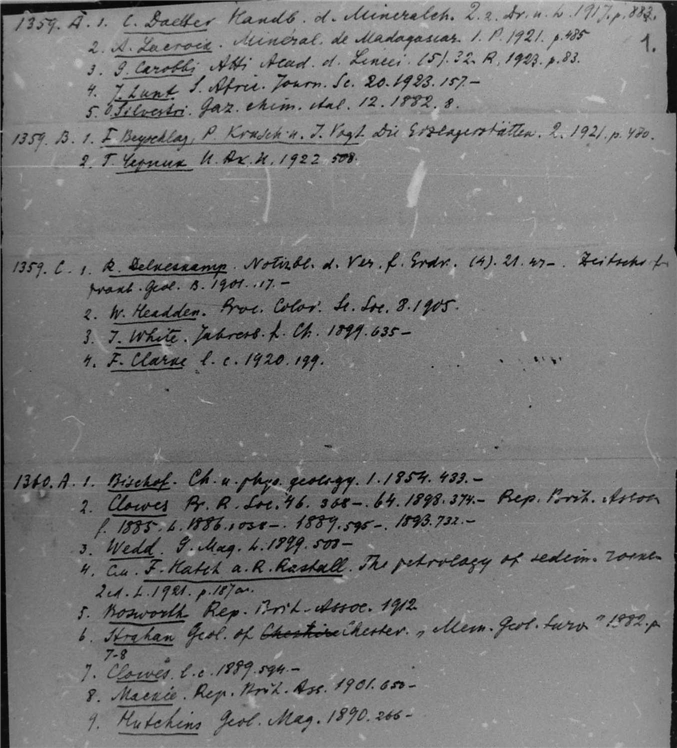 1359. A. 1. C. Doelter Handb. d. Mineralch. 2. 2. Dr. u. L. 1917. p. 883.
1.
2. A. Lacroix. Minéral. de Madagascar. 1. P. 1921. p. 485
3. G. Carobbi Atti Acad. d. Lincei. (5). 32. R. 1923. p. 83.
4. J. Lunt S. Afric. Journ. Sc. 20. 1923. 157.—
5. O. Silvestri. Gaz. chim. ital. 12. 1882. 8.
1359. B. 1. F. Beyschlag, P. Krusch u. J. Vogt Die Erzlagerstätten. 2. 1921. p. 480.
2. T. 1922. 508.
1359. C. 1. R. Delkeskamp. Notizbl. d. Ver. f. Erdk. (4). 21. 47—. Zeitsch. f.
prakt. Geol. B. 1901. 17.—
2. W. Headden. Proc. Color. Sc. Soc. 8. 1905.
3. J. White. Jahresb. f. Ch. 1899. 635—
4. F. Clarke l. c. 1920. 199.
1360. A. 1. Bischof. Ch. u. phys. geology. 1. 1854. 433.—
2. Clowes Pr. R. Soc. 46. 368—. 64. 1898. 374.— Rep. Brit. Assoc
f. 1885. L. 1886. 1038—. 1889. 595—. 1893. 732.—
3. Wedd. G. Mag. L. 1899. 508—
4. F. Hatch a. R. Rastall. The petrology of sedim.
2ed. L. 1921. p. 187
5. Bosworth Rep. Brit. Assoc. 1912
6. Strahan Geol. of Cheshire Chester. „Mem. Geol. Surv." 1882. p
7-8
7. Clowes l. c. 1889. 594—
8. Mackie. Rep. Brit. Ass. 1901. 650—
9. Hutchins Geol. Mag. 1890. 266—